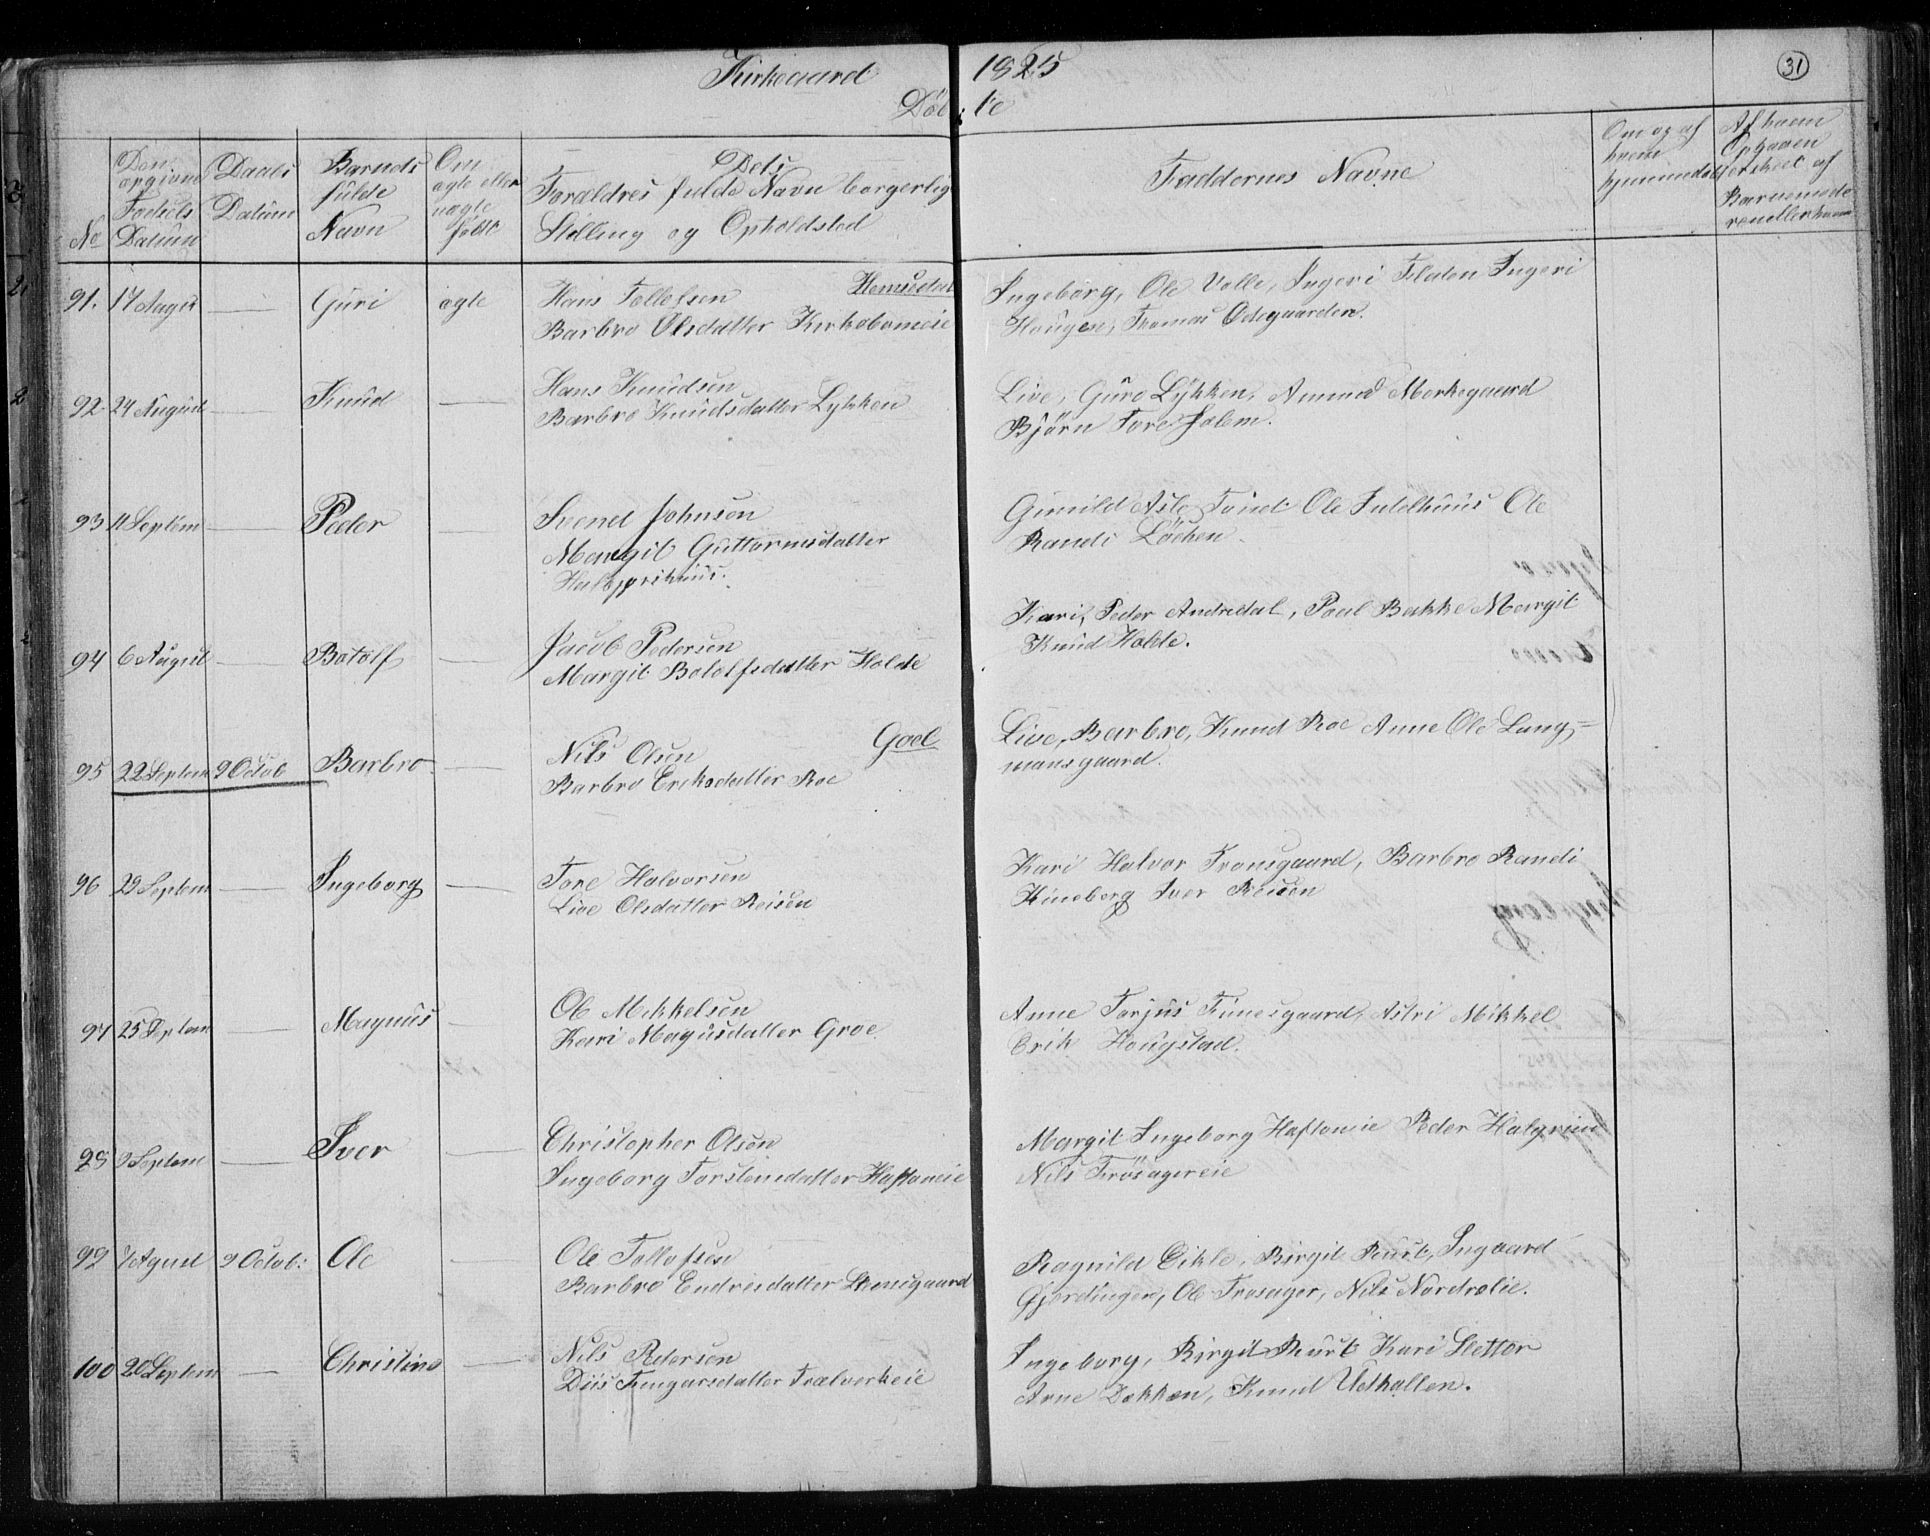 Kirkeaard 1825
31
Døbte
No
Den opgivne Fødsels Datum
Daabs Datum
Barnets fulde Navn
Om ægte eller uægte født
Dets Forældres fulde Navn borgerlig Stilling og Opholdsted
Faddernes Navne
Om og af hvem hjemmedøbt
Af hvem Opgaven er skeet af
91. 17 Guri ægte Hans Tollefsen Hemsedal
Barbro Olsdatter
Ingeborg, Ole Ulle, Ingeri Flaten Ingeri
Hougen, Thomas Ødegaarden.
92 24 August Knud Hans Knudsen
Barbro Knudsdatter Lykken
Live, Guro Lykken, Amund Morkegaard
Bjørn Tore Jalem.
93 11 Septem Peder Svend Johnsen
Margit Guttormsdatter
Gunild Asle Ole Ole
Randi Løchen.
94 6 August Botolf Jacob Pedersen
Margit Botolfsdatter Holde
Kari, Peder Andredal, Paal Bakke Margit
Knud Holde.
95 22 Septem 9 Octob Barbro Nils Olsen Goel
Barbro Eriksdatter Roe
Live, Barbro, Knud Roe Anne Ole Lang=
mansgaard.
96 29 Septem Ingeborg Tore Halvorsen
Live Olsdatter Reisen
Kari Halvor Tronsgaard, Barbro Randi
Iver Reisen
97 25 Septem Magnus Ole Mikkelsen
Kari Magusdatter Groe.
Anne Torjus Astri Mikkel
Erik Hougstad.
98 9 Septem Iver Christopher Olsen
Ingeborg Torstensdatter Haftoneie
Margit Ingeborg Haftoneie Peder Halgrim
Nils Trøsagereie
99 9 Octob: Ole Ole Tollofsen
Barbro Endresdatter
Ragnild Eikle, Birgit Ruust, Ingvard
Gjerdingen, Ole Trøsager, Nils Nordrolie.
100 20 Septem Christine Nils Pedersen
Ingeborg, Birgit Ruust Kari Sletter
Arne Dokken, Knud Uethallen.